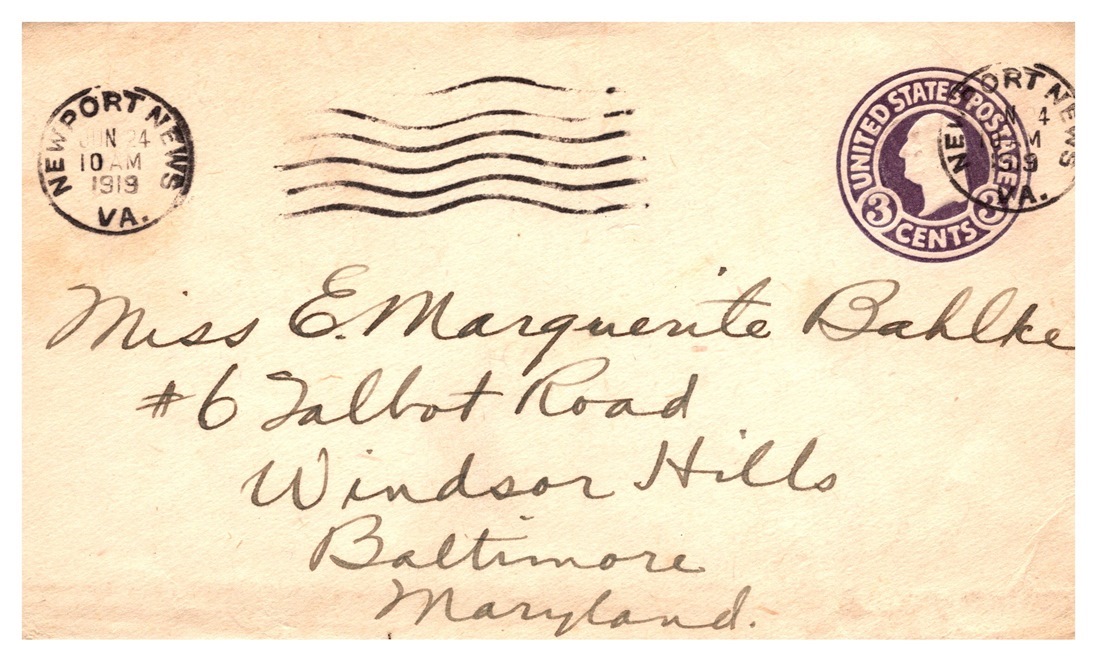 NEWPORT NEWS
JUN 24
10 AM
1919
VA.
UNITED STATES POSTAGE
3 CENTS 3
PORT NEWS
NEW
N 24
M
1919
VA.
Miss E. Marguerite Bahlke
#6 Talbot Road
Windsor Hills
Baltimore
Maryland.